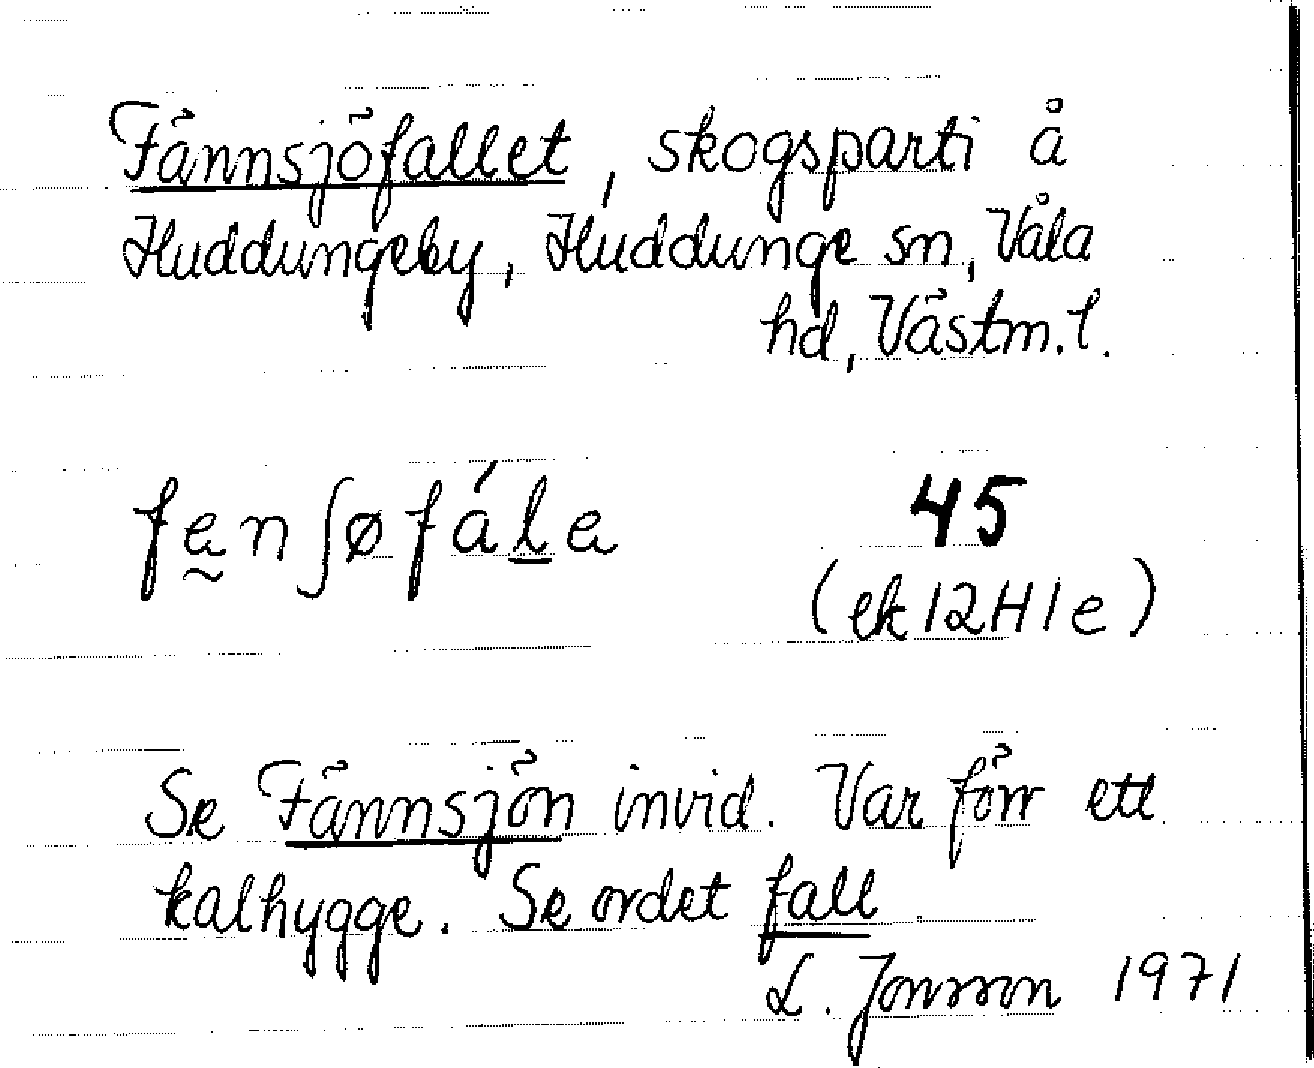 Fännsjöfallet, skogsparti å
Huddungeby, Huddunge sn, Våla
hd, Västm. l.
fḛnʃøfál̲e
45
(ek 12H1e)
Se Fännsjön invid. Var förr ett
kalhygge. Se ordet fall
L. Jonsson 1971